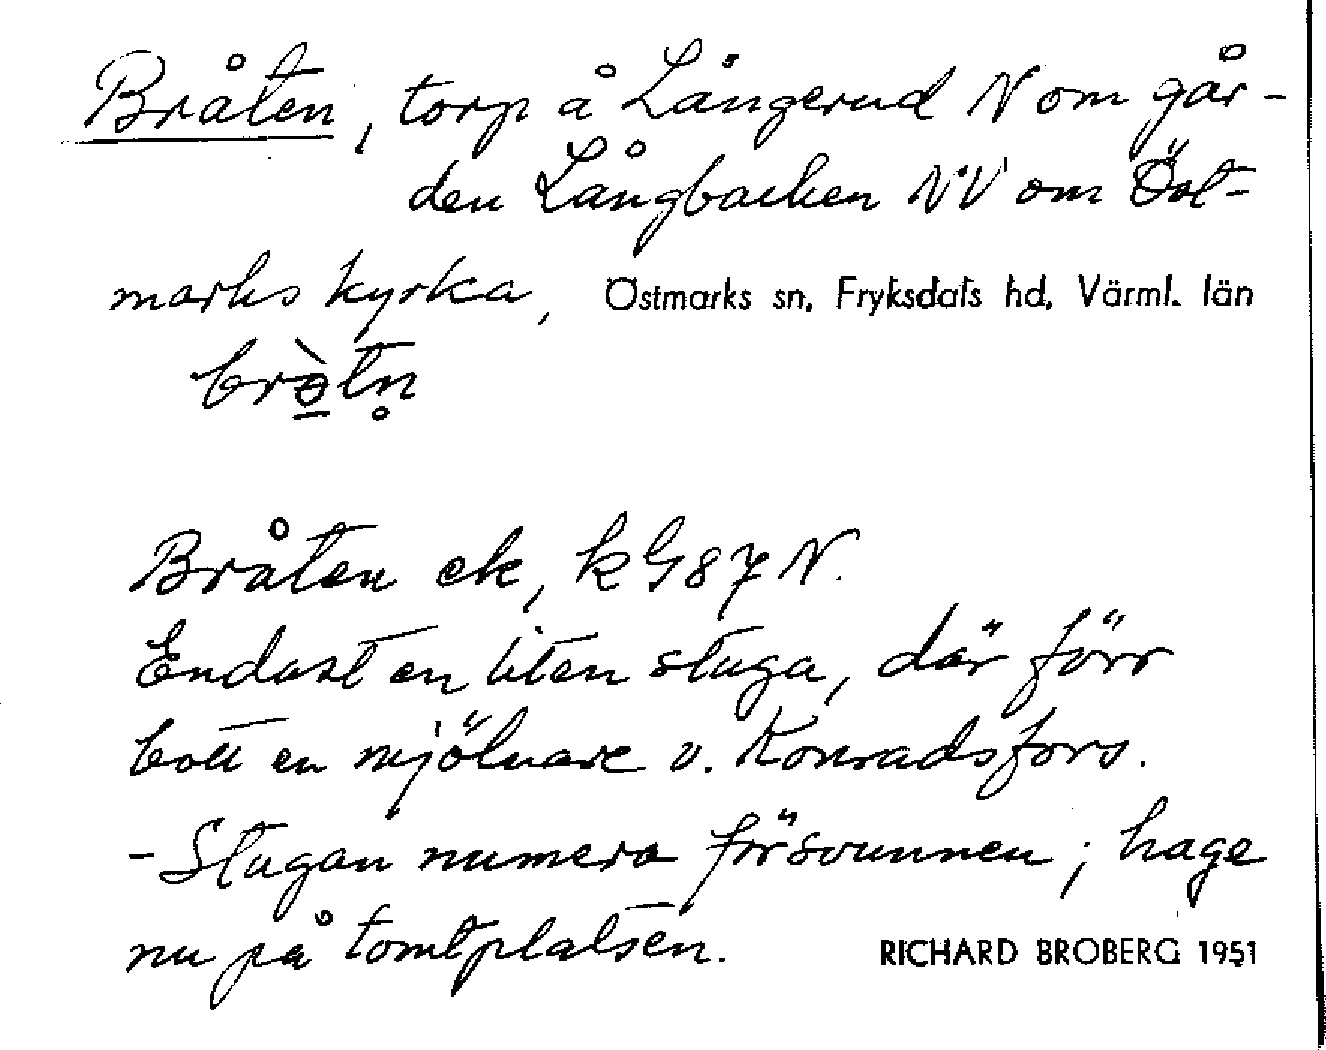 Bråten, torp å Långerud N om går-
den Långbacken NV om Öst-
marks kyrka, Östmarks sn, Fryksdals hd, Värml. län
bròtn̥
Bråten ek, k G87 N.
Endast en liten stuga, där förr
bott en mjölnare v. Konradsfors.
- Stugan numera försvunnen; hage
nu på tomtplatsen. RICHARD BROBERG 1951